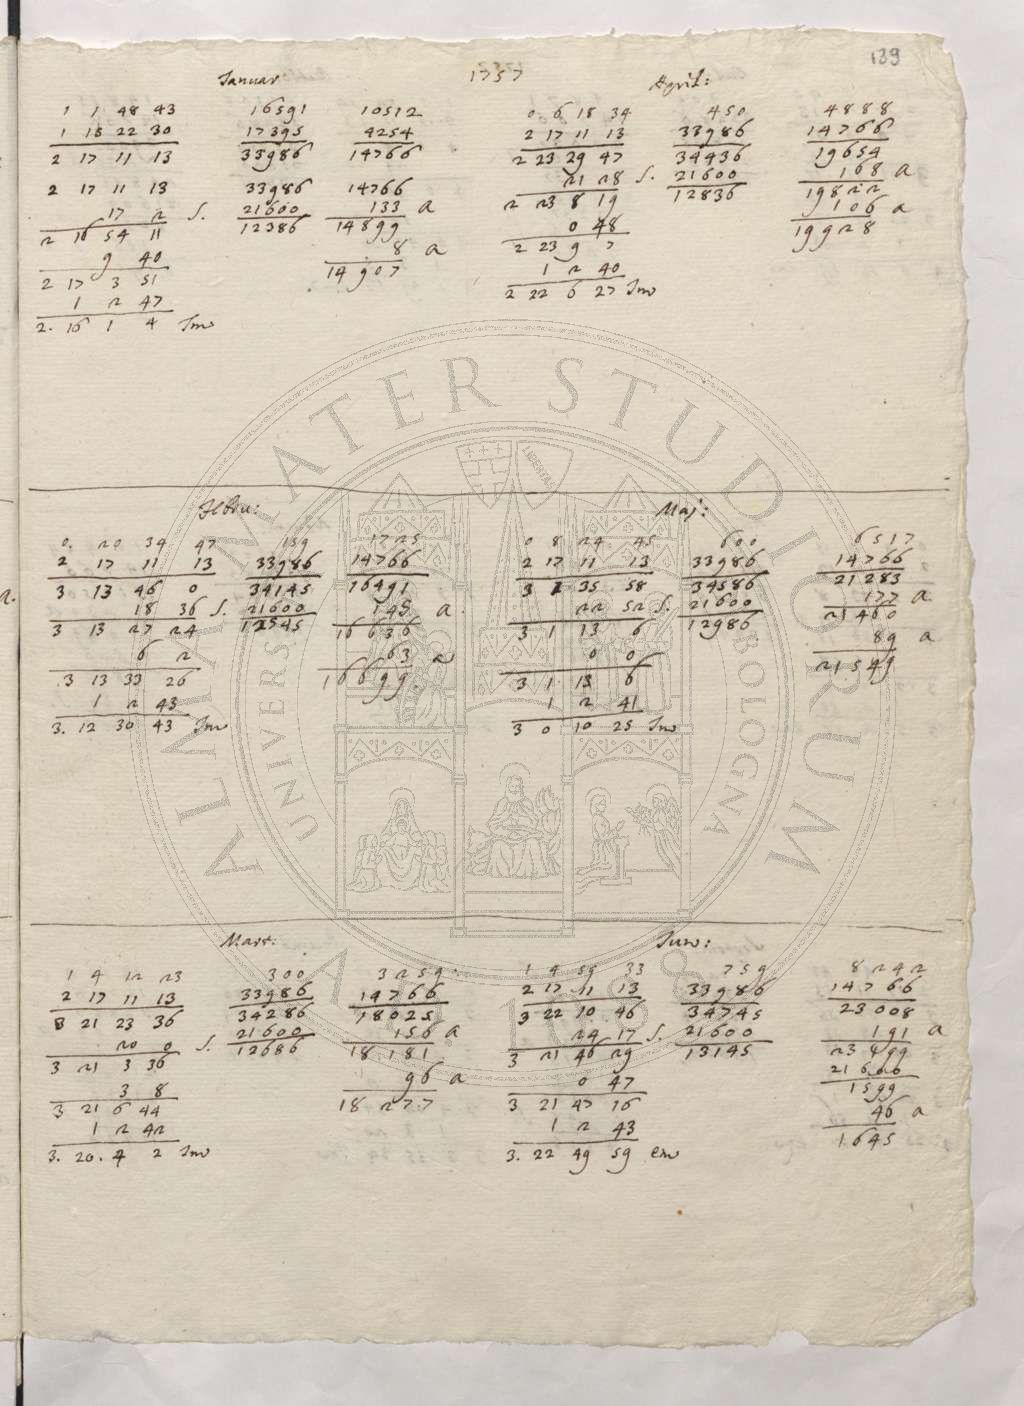 139
1757
Januar
1 1 48 43 16591 10512
1 15 22 30 17395 4254
2 17 11 13 33986 14766
2 17 11 13 33986 14766
17 2 S. 21600 133 a
2 16 54 11 12386 14899
9 40 8 a
2 17 3 51 14907
1 2 47
2. 16 1 4
April:
0 6 18 34 450 4888
2 17 11 13 33986 14766
2 23 29 47 34436 19654
21 28 S. 21600 168 a
2 23 8 19 12836 19822
0 48 106 a
2 23 9 7 19928
1 2 40
2 22 6 27
0. 20 34 47 159 1725
2 17 11 13 33986 14766
3 13 46 0 34145 16491
18 36 S. 21600 145 a
3 13 27 24 12545 16636
6 2 63 a
3 13 33 26 16699
1 2 43
3. 12 30 43
Maj:
0 8 24 45 600 6517
2 17 11 13 33986 14766
3 1 35 58 34586 21283
22 52 S. 21600 177 a
3 1 13 6 12986 21460
0 0 89 a
3 1 13 6 21549
1 2 41
3 0 10 25
Mart:
1 4 12 23 300 3259
2 17 11 13 33986 14766
3 21 23 36 34286 18025
20 0 S. 21600 156 a
3 21 3 36 12686 18181
3 8 96 a
3 21 6 44 18277
1 2 42
3. 20. 4 2
1 4 59 33 759 8242
2 17 11 13 33986 14766
3 22 10 46 34745 23008
24 17 S. 21600 191 a
3 21 46 29 13145 23499
0 47 21600
3 21 47 16 1599
1 2 43 46 a
3. 22 49 59 1645
ALMA MATER STUDIORUM
A.D. 1088
UNIVERS BOLOGNA
LIBERTAS